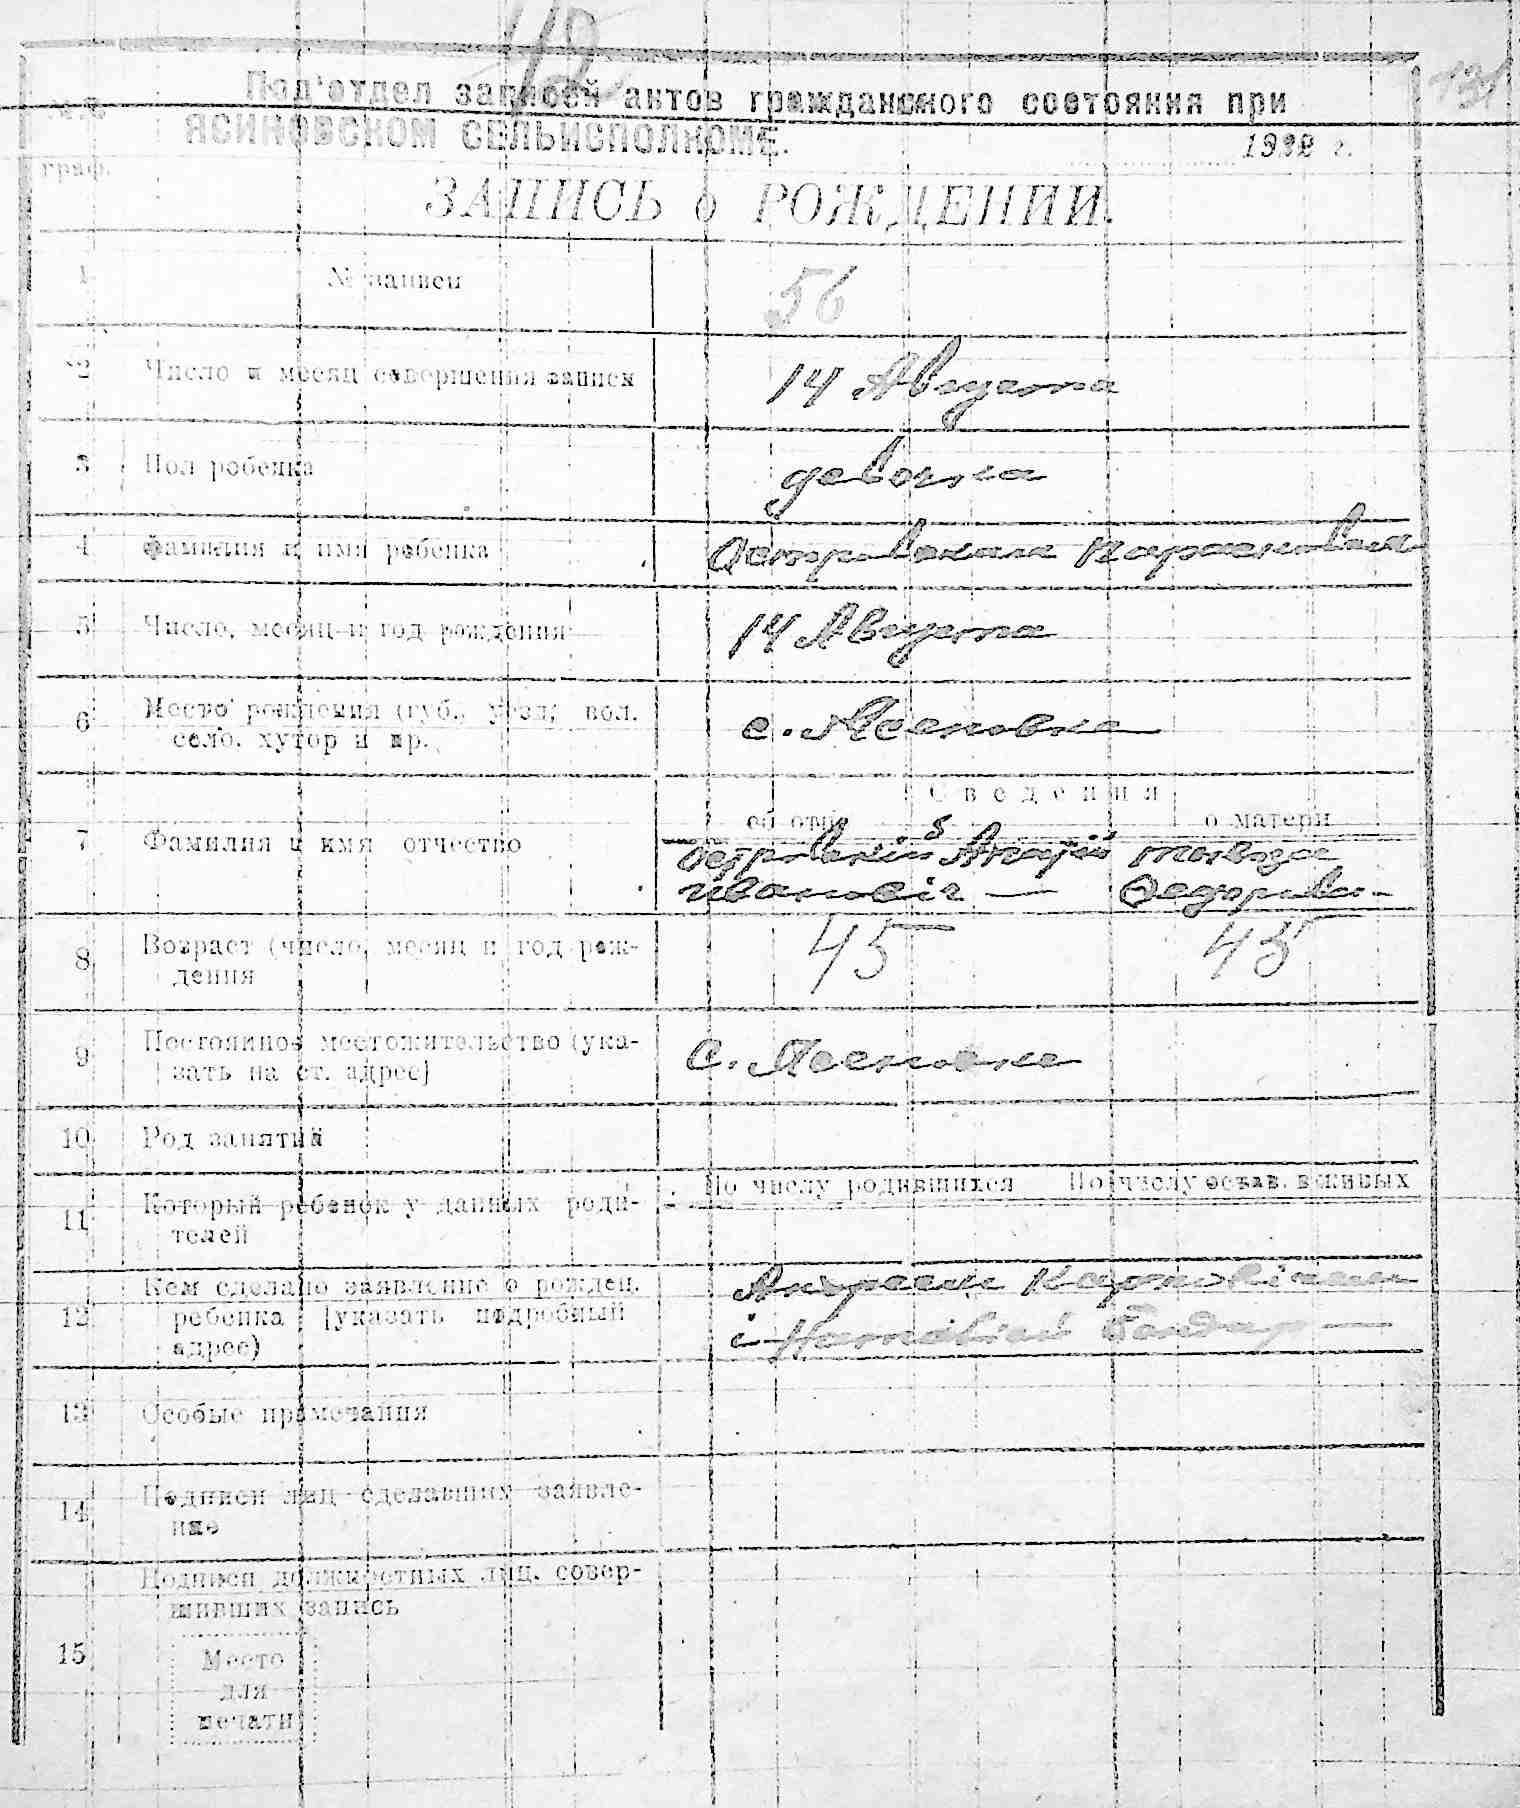 42
131
Под'отдел записей актов гражданского состояния при
ЯСИНОВСКОМ СЕЛЬИСПОЛКОМЕ.
№№
граф.
1922 г.
ЗАПИСЬ о РОЖДЕНИИ.
1 № записи 56
2 Число и месяц совершения записи 14 Августа
3 Пол ребенка девочка
4 Фамилия и имя ребенка Островская
5 Число, месяц и год рождения 14 Августа
6 Место рождения (губ., уезд, вол.
село, хутор и пр. с. Ясеновка
Сведения
об отце о матери
7 Фамилия и имя отчество Островскій
Ивановіч —
8 Возраст (число, месяц и год рож-
дения 45 45
9 Постоянное местожительство (ука-
зать на ст. адрес) С. Ясеновка
10 Род занятий
По числу родившихся По числу остав. в живых
11 Который ребенок у данных роди-
телей
12 Кем сделано заявление о рожден.
ребенка [указать подробный
адрес)
Андреем Карповічем
і Наталіей Бондар —
13 Особые примечания
14 Подписи лиц сделавших заявле-
ние
Подписи должностных лиц. совер-
шивших запись
15 Место
для
печати